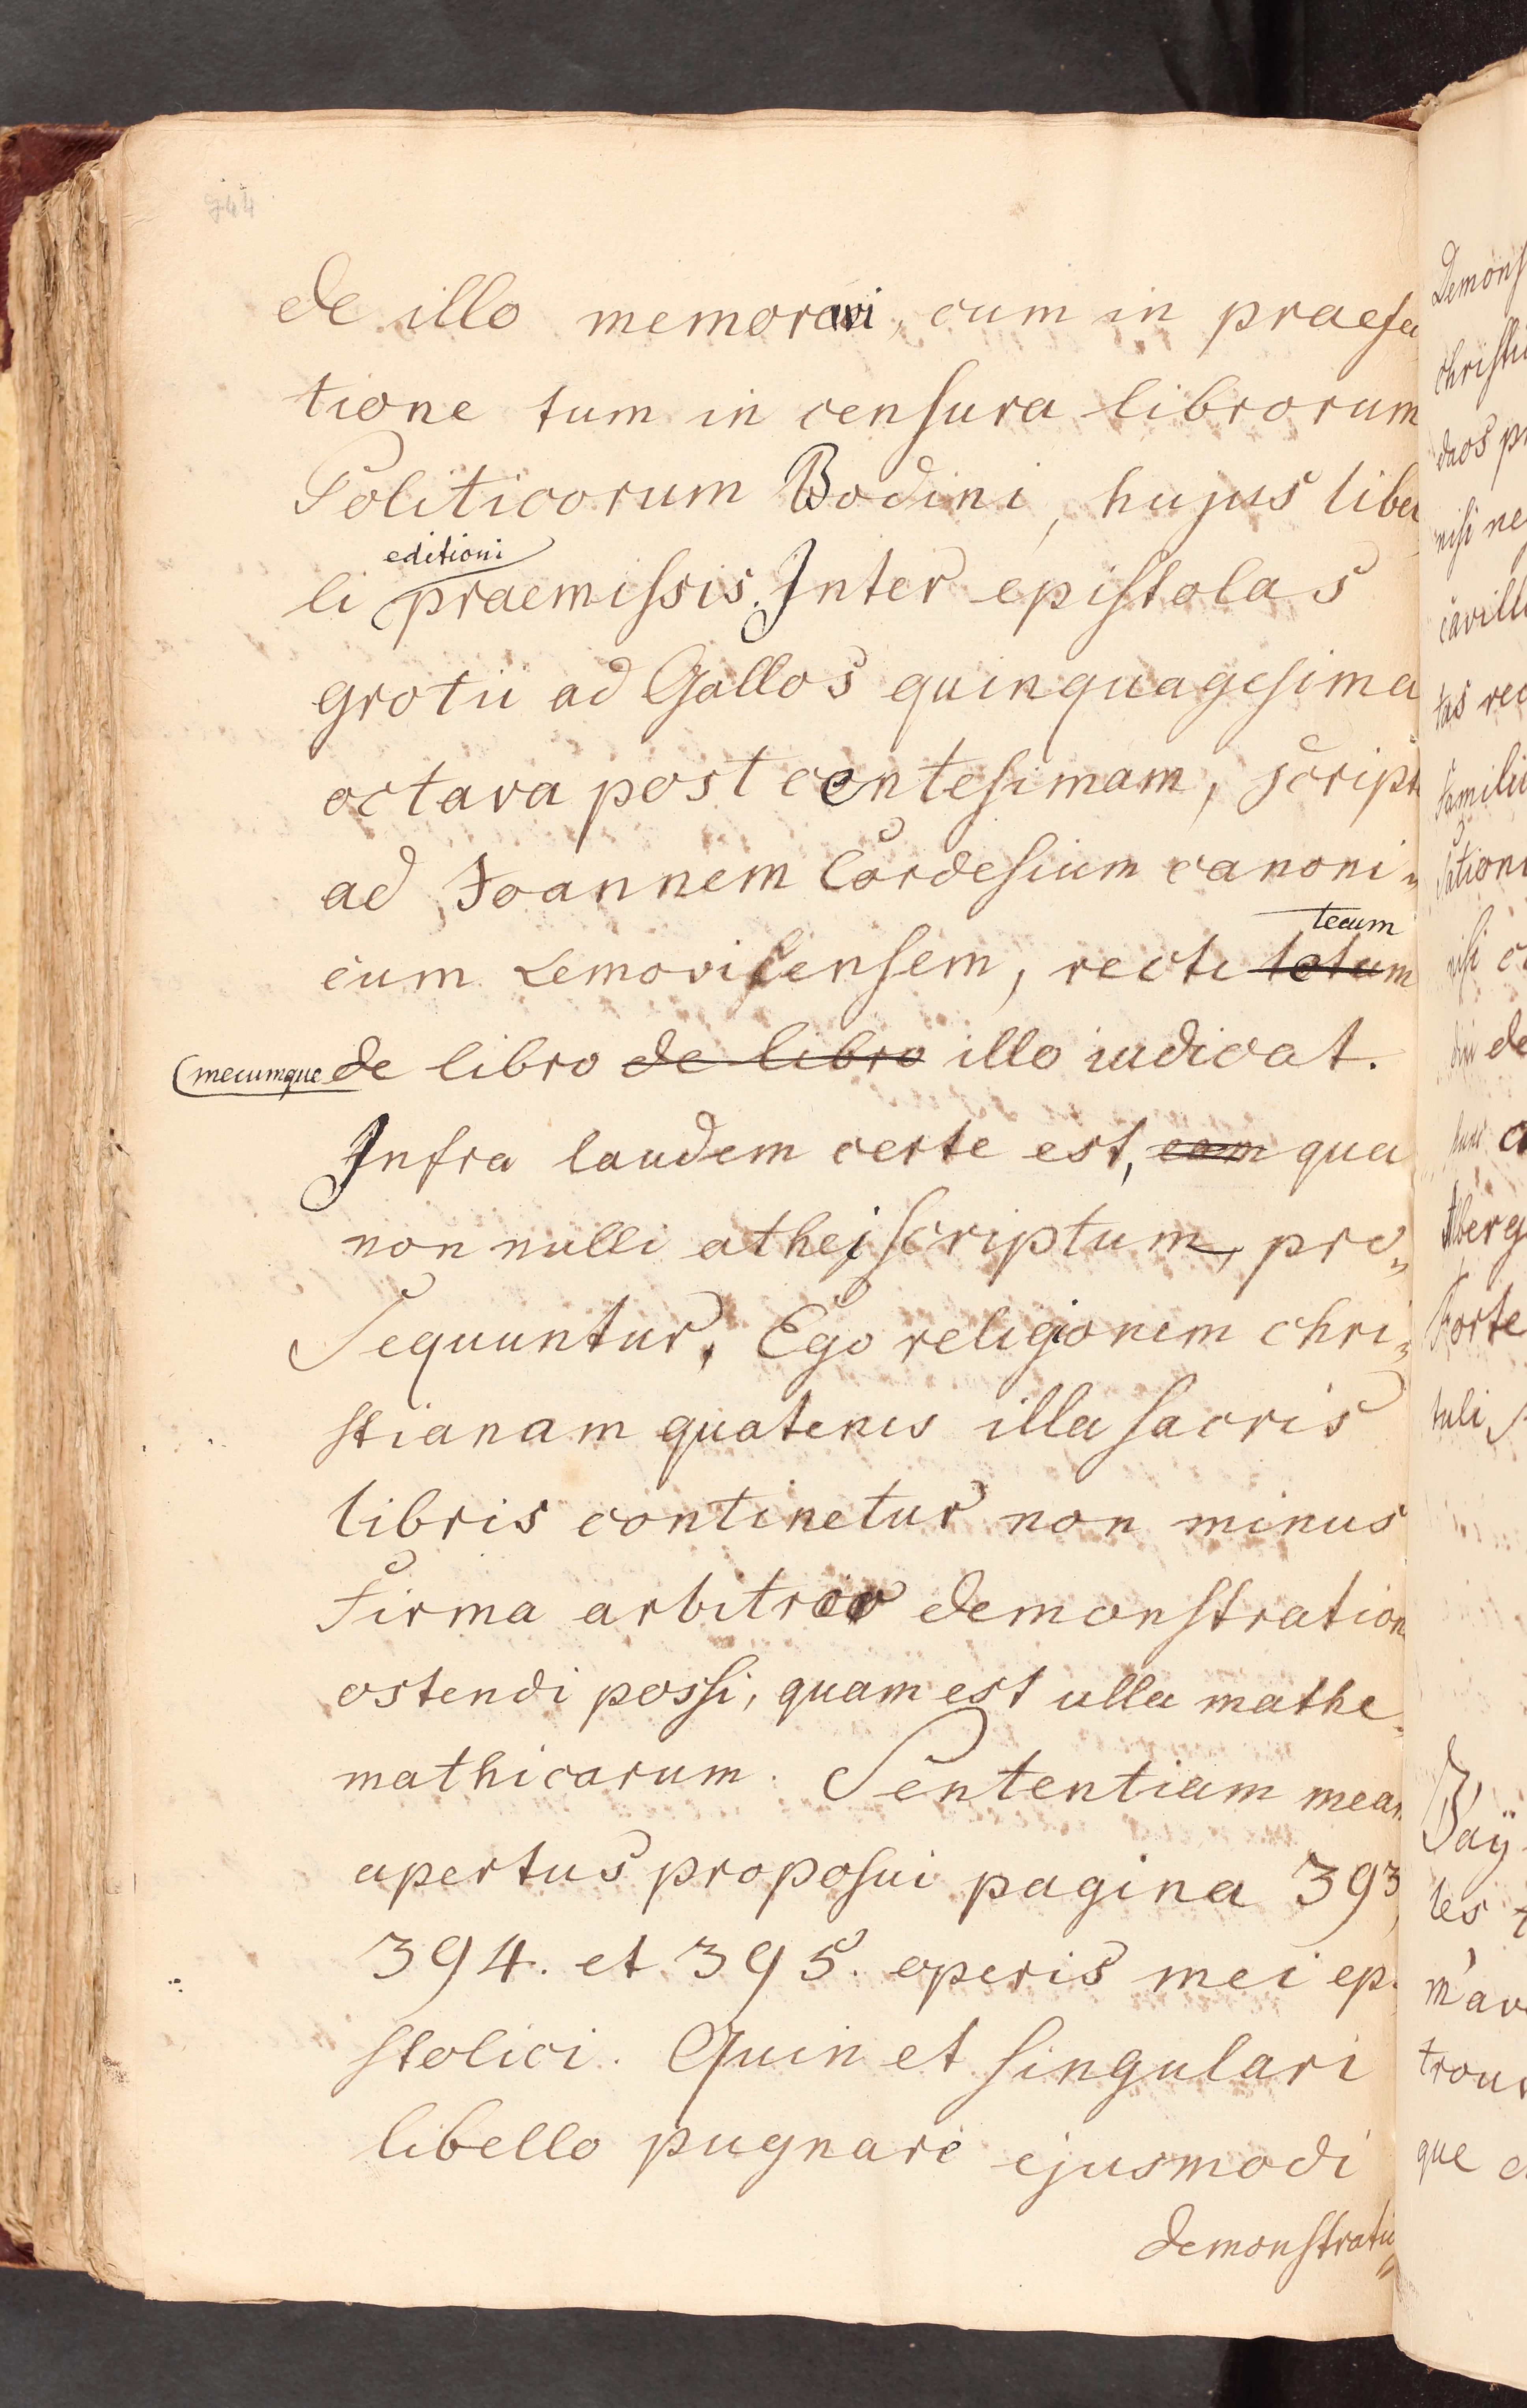 744
de illo memoravi, cum in praefa
tione tum in censura librorum
Politicorum Bodini, hujus libel
editioni
li praemissis. Inter epistolas
grotii ad Gallos quinquagesima
octava post centesimam, script
ad Joannem Cordesium canoni„
tecum
cum Lemovicensem, recti totum
mecumque de libro de libro illo iudicat.
Infra laudem certe est, eam qua
non nulli athei scriptum, pro„
sequuntur, Ego religionem chri„
stianam quatenus illa sacris
libris continetur non minus
firma arbitror demonstration
ostendi possi, quam est ulla mathe„
mathicarum. Sententiam meam
apertus proposui pagina 393
394. et 395. operis mei ep„
stolici. Quin et singulari
libello pugnare ejusmodi
demonstratio„
Demons
christi
duos pr
nisi ne
cavill
tas rec
familii
sation
nisi c
dini de
hinc a
Aberg
Forte
tuli s
Jaÿ
les
m'av
trou
que